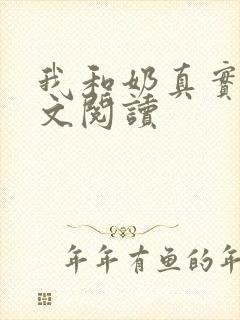 我和奶真實
文閱讀
年年有鱼的年